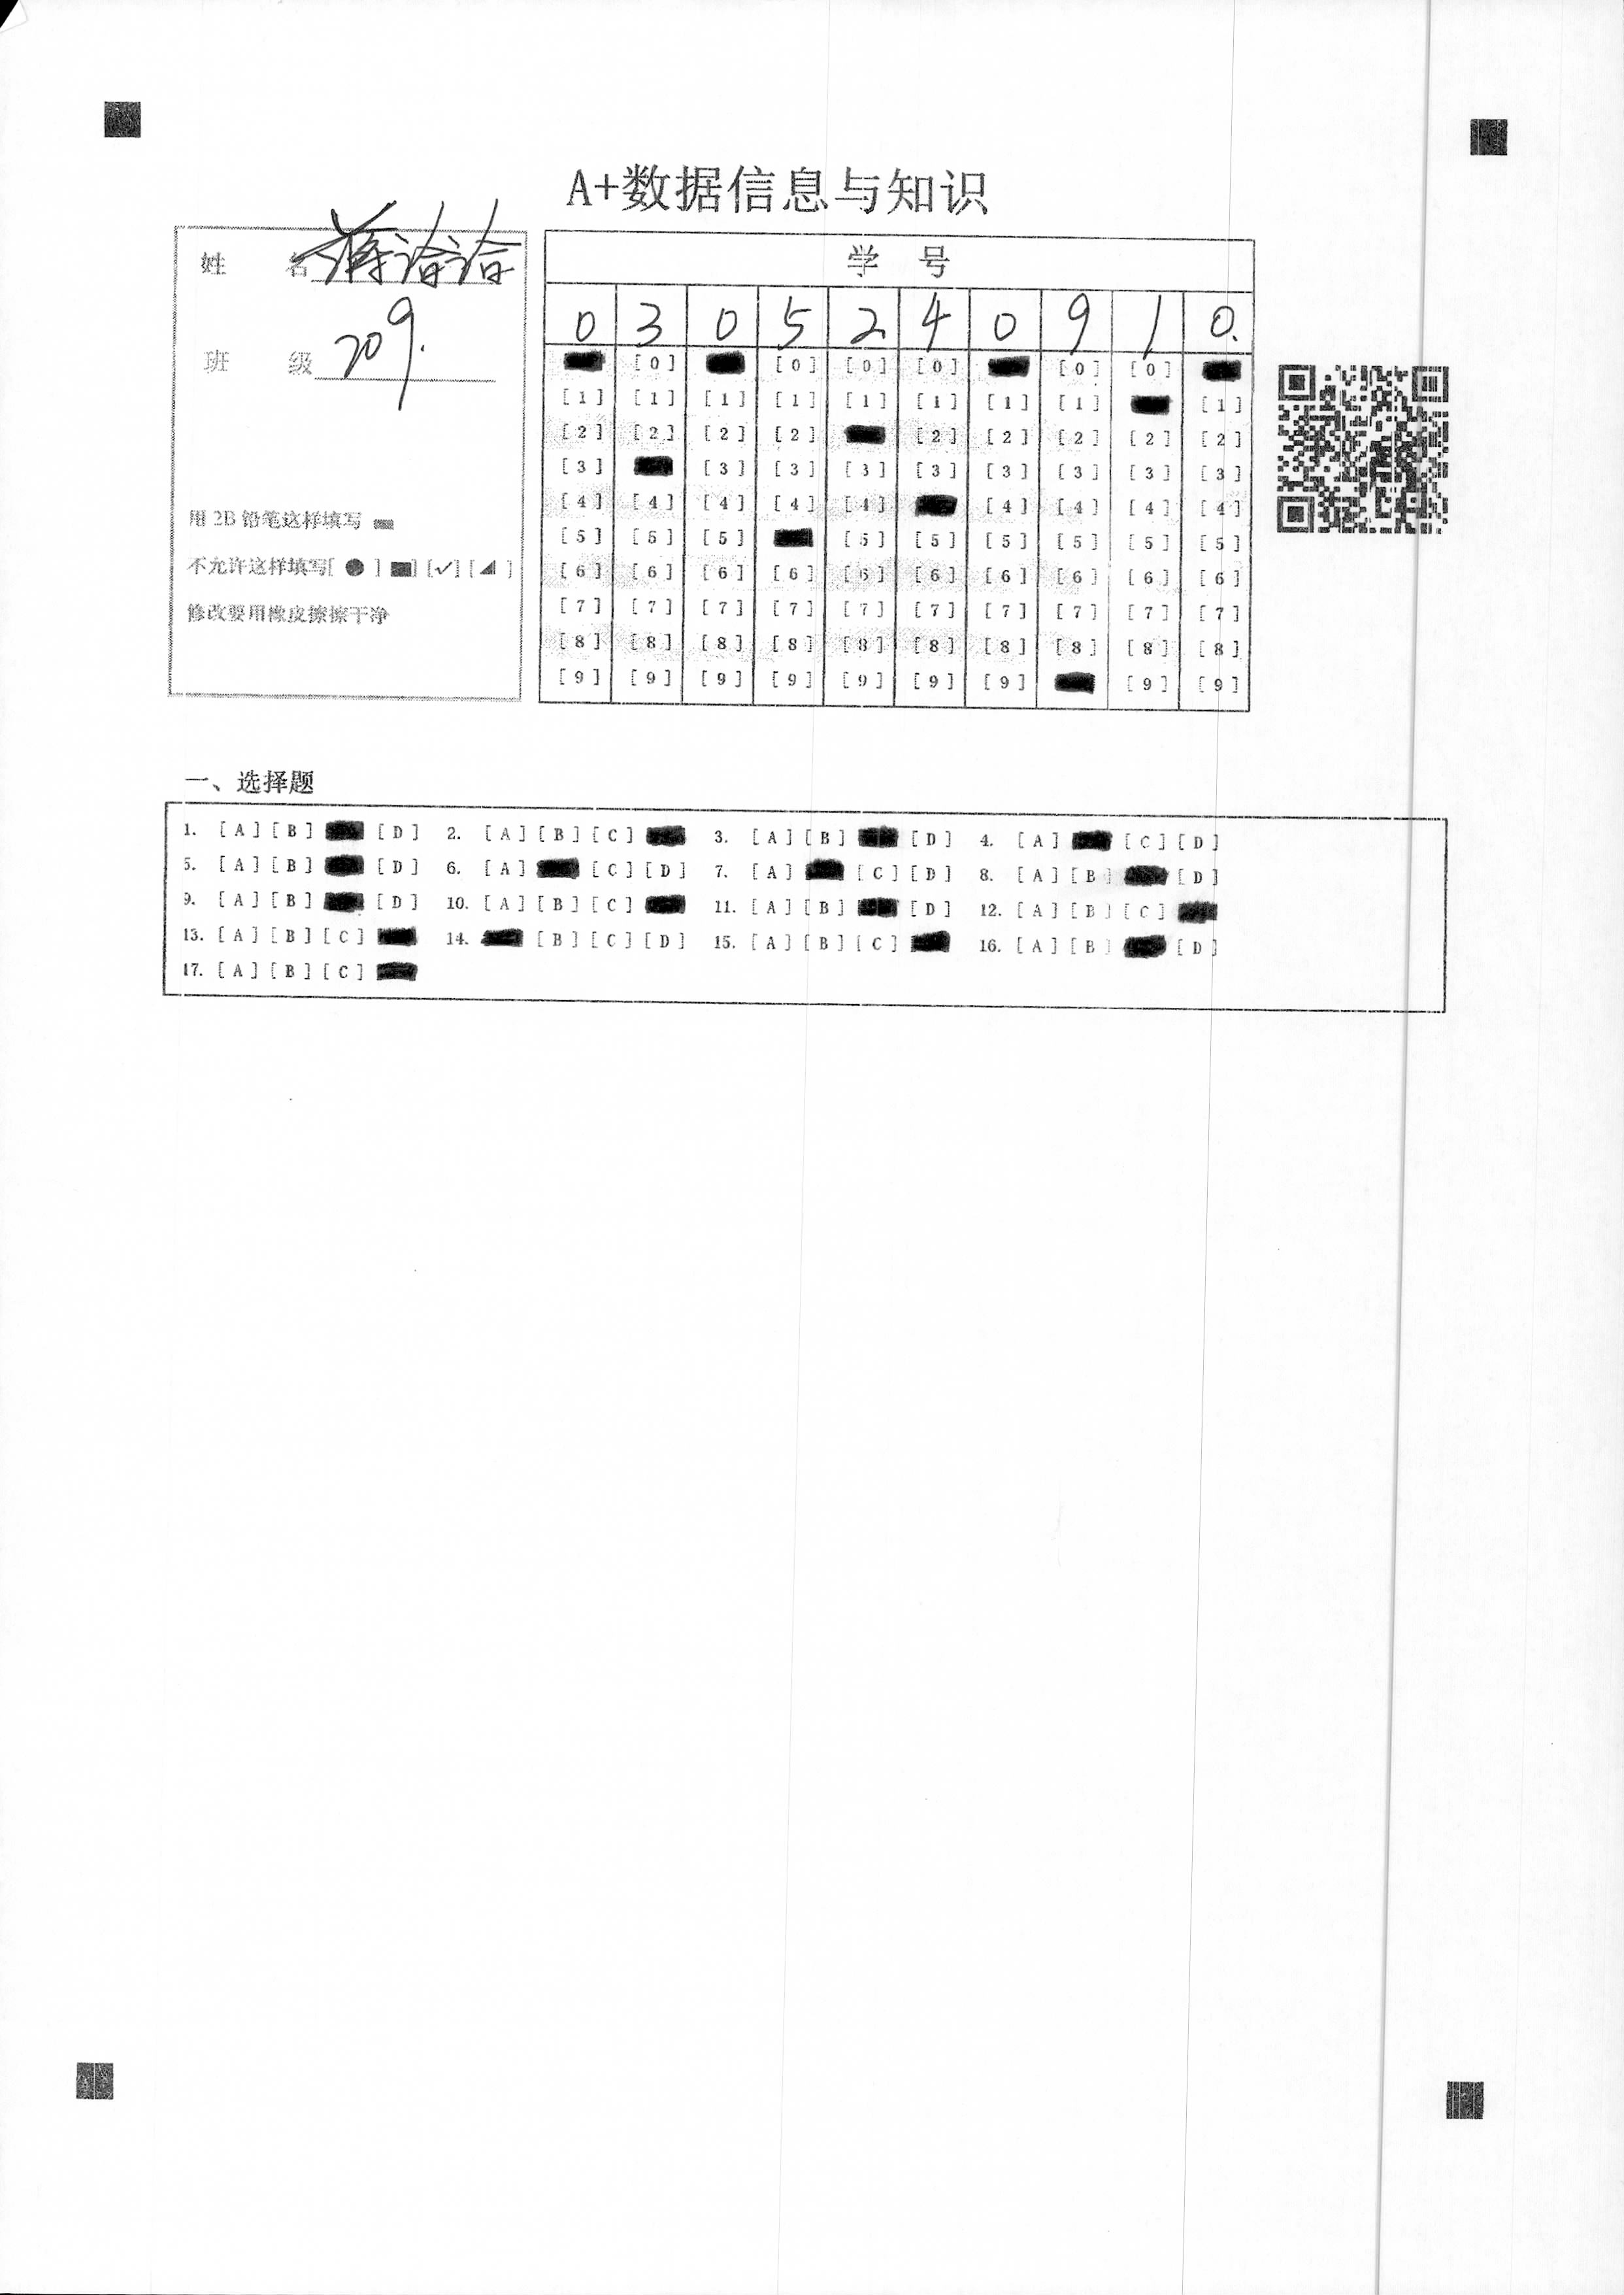 A+数据信息与知识
姓 名 蒋洽洽
班 级 209.
用 2B 铅笔这样填写
不允许这样填写[ ● ] [■] [✓] [◢ ]
修改要用橡皮擦擦干净
学 号
0 3 0 5 2 4 0 9 1 0.
[0] [0] [0] [0] [0] [0]
[1] [1] [1] [1] [1] [1] [1] [1] [1]
[2] [2] [2] [2] [2] [2] [2] [2] [2]
[3] [3] [3] [3] [3] [3] [3] [3] [3]
[4] [4] [4] [4] [4] [4] [4] [4] [4]
[5] [5] [5] [5] [5] [5] [5] [5] [5]
[6] [6] [6] [6] [6] [6] [6] [6] [6] [6]
[7] [7] [7] [7] [7] [7] [7] [7] [7] [7]
[8] [8] [8] [8] [8] [8] [8] [8] [8] [8]
[9] [9] [9] [9] [9] [9] [9] [9] [9]
一、选择题
1. [A] [B] [D] 2. [A] [B] [C] 3. [A] [B] [D] 4. [A] [C] [D]
5. [A] [B] [D] 6. [A] [C] [D] 7. [A] [C] [D] 8. [A] [B] [D]
9. [A] [B] [D] 10. [A] [B] [C] 11. [A] [B] [D] 12. [A] [B] [C]
13. [A] [B] [C] 14. [B] [C] [D] 15. [A] [B] [C] 16. [A] [B] [D]
17. [A] [B] [C]